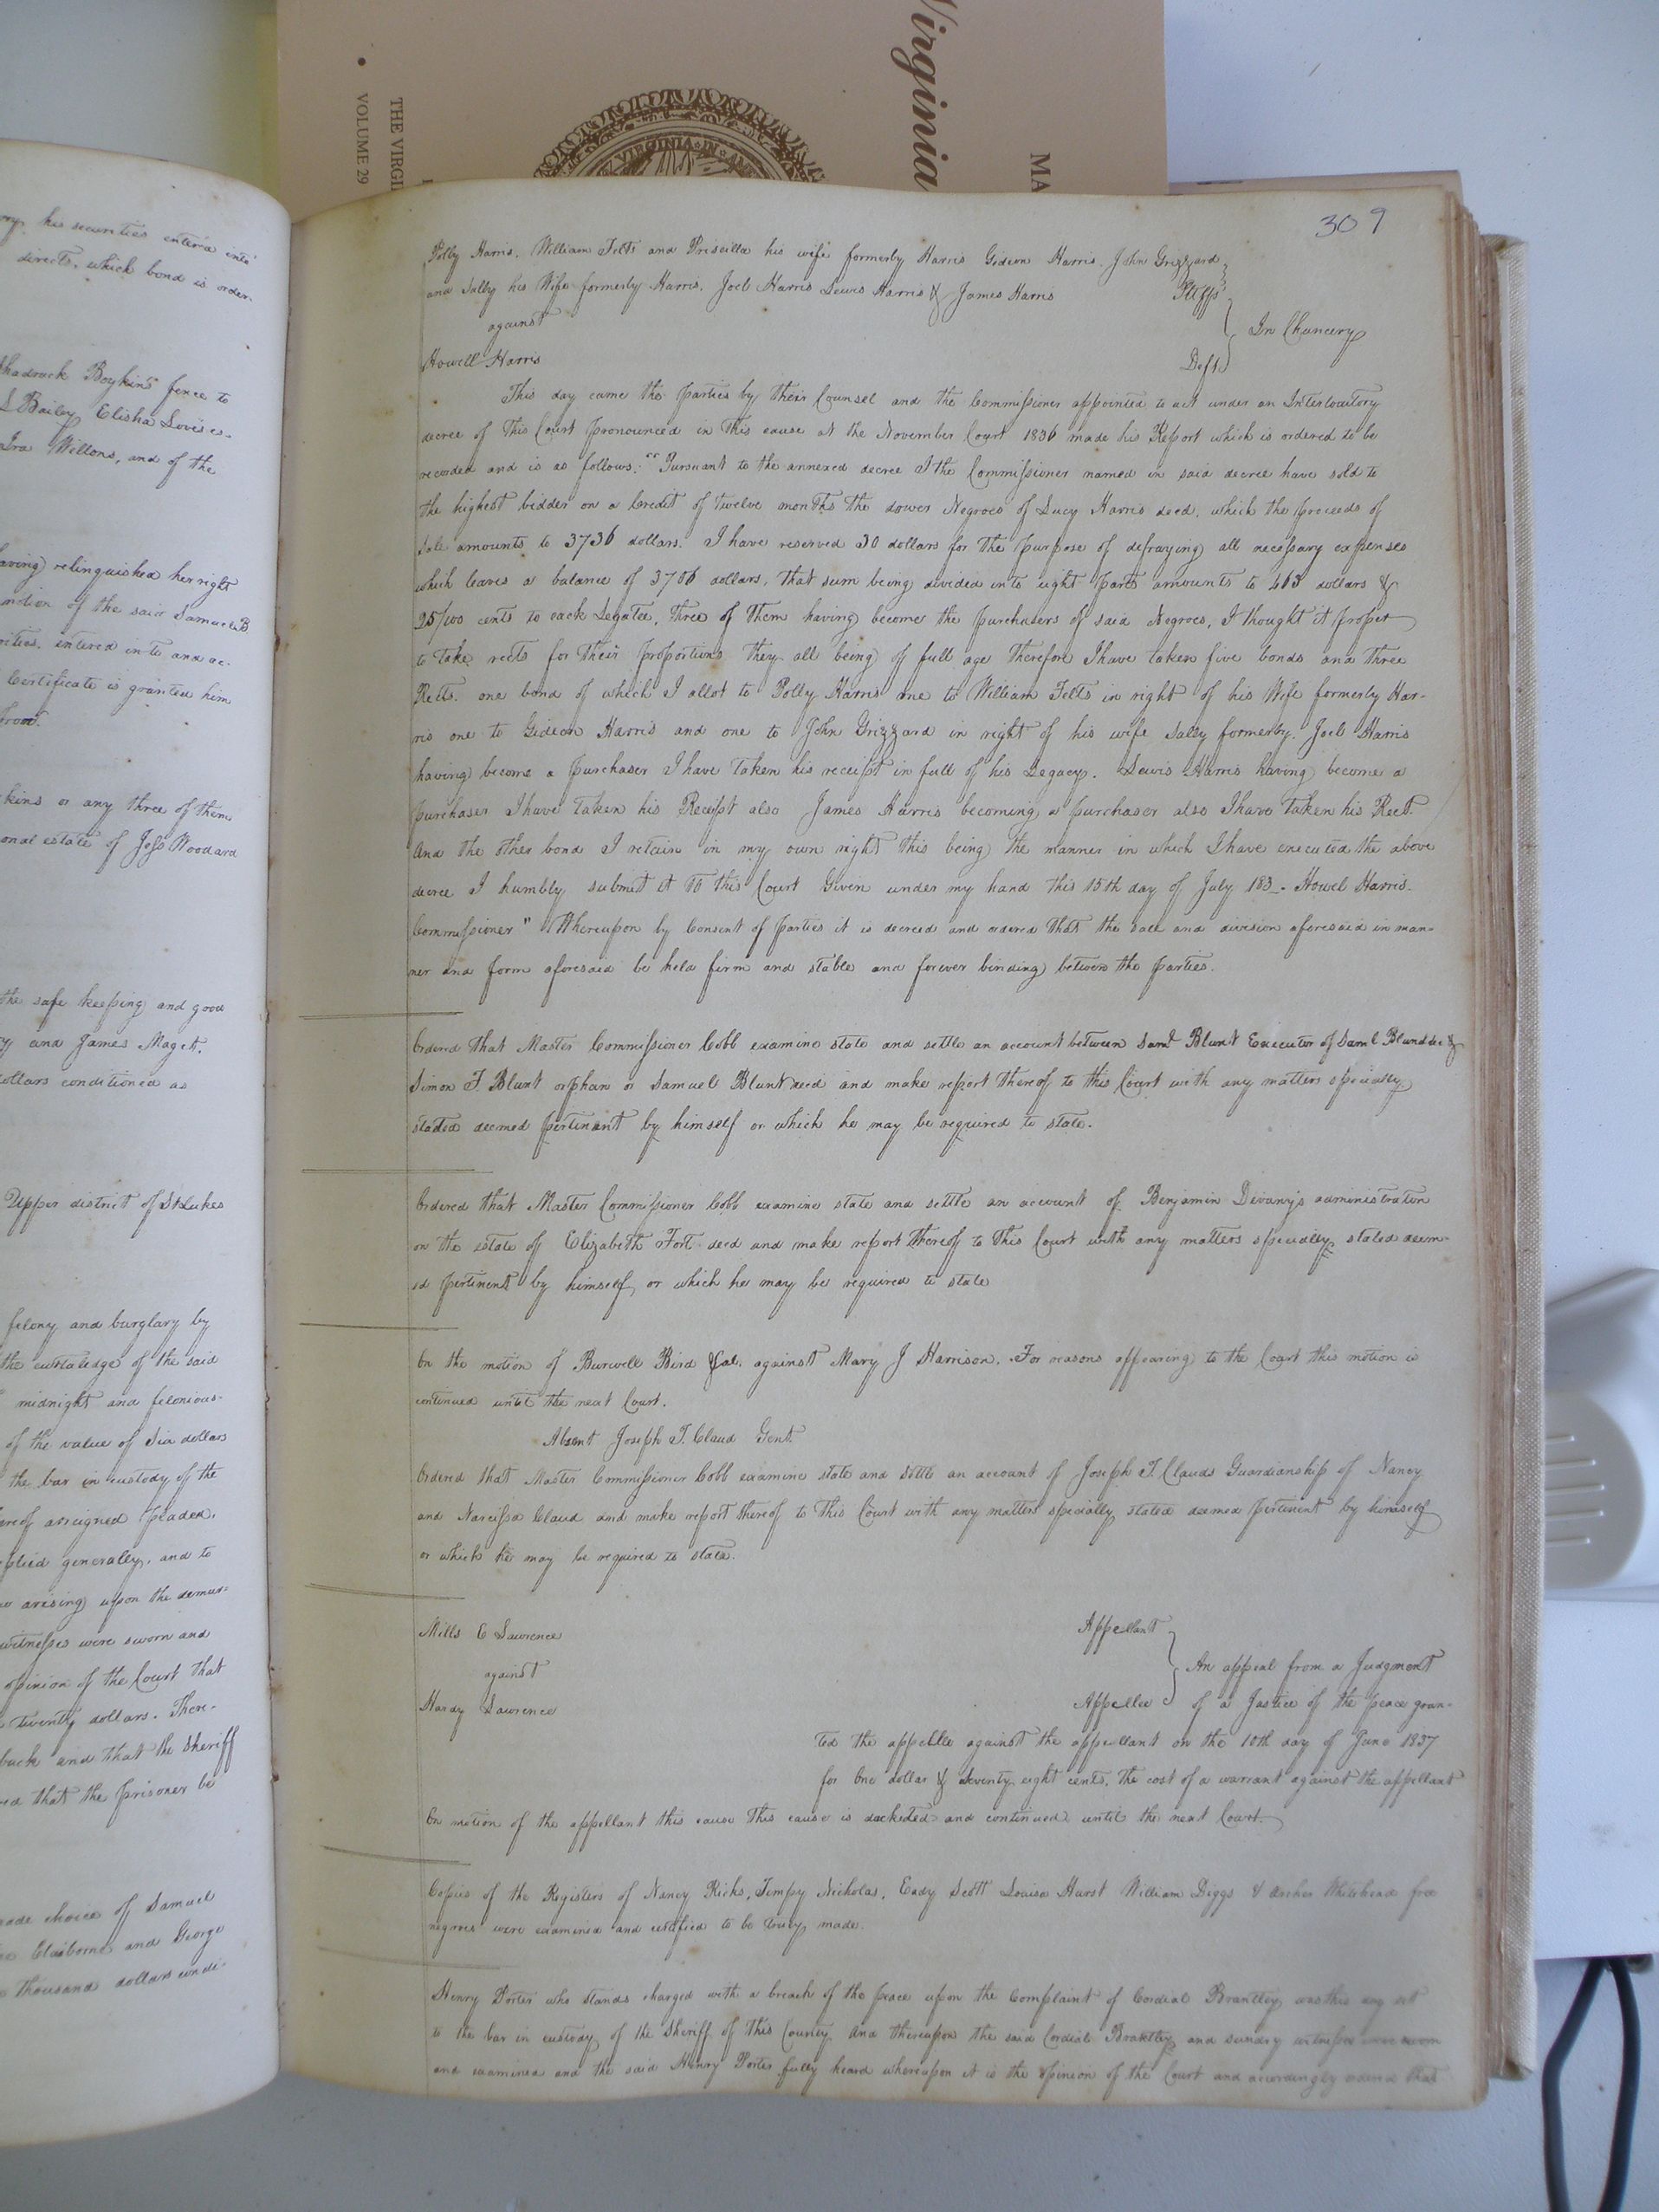 Virginia
MA
THE VIRGI
VOLUME 29
VIRGINIA IN
309
his securities entered into
directs, which bond is order-
Shadrack Boykins fence to
L Bailey Elisha Loves es-
Ira Wellons, and of the
aving relinquished her right
motion of the said Samuel B
rities, entered into and ac-
Certificate is granted him
from.
kins or any three of them
onal estate of Jos Woodard
the safe keeping and good
and James Maget.
dollars conditioned as
Upper district of St Lukes
felony and burglary by
the curtaledge of the said
midnight and felonious-
of the value of Six dollars
the bar in custody of the
assigned pleaded,
plied generally, and to
arising upon the demur-
witnesses were sworn and
opinion of the Court that
Twenty dollars. There-
back and that the Sheriff
that the prisoner be
made choice of Samuel
Claiborne and George
thousand dollars condi-
Polly Harris, William Felts and Priscilla his wife formerly Harris Gideon Harris, John Grizzard
and Sally his Wife formerly Harris, Joel Harris Lewis Harris & James Harris Pltffs
against
In Chancery
Howell Harris Deft
This day came the parties by their Counsel and the Commissioner appointed to act under an Interlocutory
decree of this Court pronounced in this cause at the November Court 1836 made his Report which is ordered to be
recorded and is as follows: "Pursuant to the annexed decree I the Commissioner named in said decree have sold to
the highest bidder on a Credit of twelve months the dower Negroes of Lucy Harris decd, which the proceeds of
Sale amounts to 3736 dollars. I have reserved 30 dollars for the purpose of defraying all necessary expenses
which leaves a balance of 3706 dollars, that sum being divided into eight parts amounts to 463 dollars &
25/100 cents to each Legatee, three of them having become the purchasers of said Negroes, I thought it proper
to take rects for their proportions they all being of full age therefore I have taken five bonds and three
Rects. one bond of which I allot to Polly Harris one to William Felts in right of his Wife formerly Har-
ris one to Gideon Harris and one to John Grizzard in right of his wife Sally formerly. Joel Harris
having become a purchaser I have taken his receipt in full of his Legacy. Lewis Harris having become a
purchaser I have taken his Receipt also James Harris becoming a purchaser also I have taken his Rect.
And the other bond I retain in my own right this being the manner in which I have executed the above
decree I humbly submit it to this Court Given under my hand this 15th day of July 183_. Howel Harris
Commissioner" Whereupon by Consent of parties it is decreed and ordered that the sale and division aforesaid in man-
ner and form aforesaid be held firm and stable and forever binding between the parties.
Ordered that Master Commissioner Cobb examine state and settle an account between Saml Blunt Executor of Saml Blunt dec &
Simon T. Blunt orphan of Samuel Blunt decd and make report thereof to this Court with any matters specially
stated deemed pertinent by himself or which he may be required to state.
Ordered that Master Commissioner Cobb examine state and settle an account of Benjamin Devany's administration
on the estate of Elizabeth Fort decd and make report thereof to this Court with any matters specially stated deem-
ed pertinent by himself or which he may be required to state
On the motion of Burwell Bird &al. against Mary J Harrison. For reasons appearing to the Court this motion is
continued until the next Court.
Absent Joseph T. Claud Gent.
Ordered that Master Commissioner Cobb examine state and settle an account of Joseph T. Clauds Guardianship of Nancy
and Narcissa Claud and make report thereof to this Court with any matters specially stated deemed pertinent by himself
or which he may be required to state.
Mills E Lawrence Appellant
against An appeal from a Judgment
Hardy Lawrence Appellee of a Justice of the peace gran-
ted the appellee against the appellant on the 10th day of June 1837
for One dollar & Seventy eight cents, the cost of a warrant against the appellant
On motion of the appellant this cause This cause is docketed and continued until the next Court.
Copies of the Registers of Nancy Ricks, Tempy Nicholas, Eady Scott Louisa Hurst William Diggs & Archer Whitehead free
negroes were examined and certified to be truly made.
Henry Porter who stands charged with a breach of the peace upon the Complaint of Cordial Brantley was this day set
to the bar in custody of the Sheriff of this County. And thereupon the said Cordial Brantley and sundry witnesses were sworn
and examined and the said Henry Porter fully heard whereupon it is the opinion of the Court and accordingly ordered that